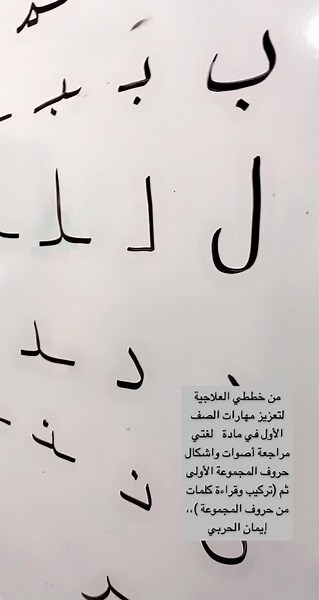 ب بـ ـبـ
ل لـ ـلـ
د ـد
نـ ـنـ
من خططي العلاجية
لتعزيز مهارات الصف
الأول في مادة لغتي
مراجعة أصوات واشكال
حروف المجموعة الأولى
ثم (تركيب وقراءة كلمات
من حروف المجموعة )،،
إيمان الحربي